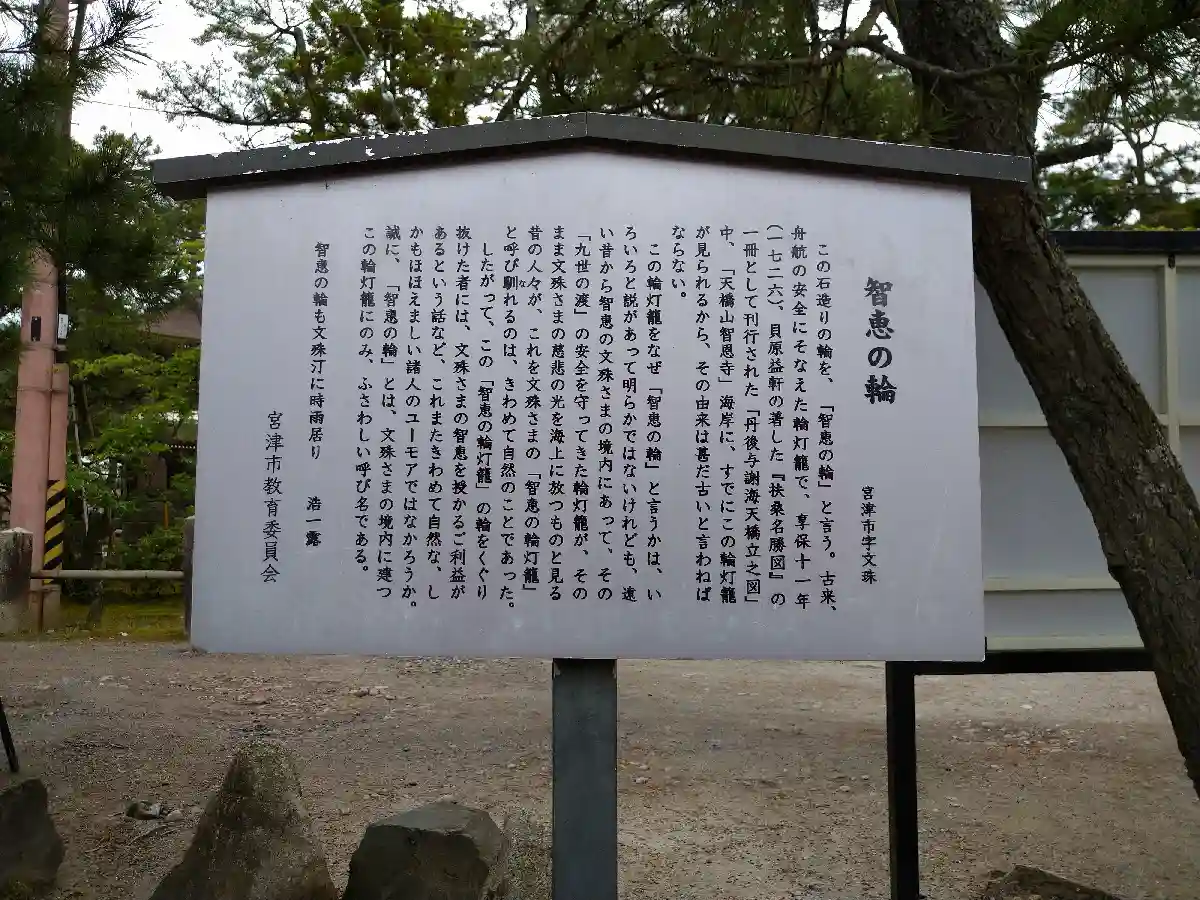 智恵の輪
宮津市字文珠
この石造りの輪を、「智恵の輪」と言う。古来、
舟航の安全にそなえた輪灯籠で、享保十一年
(一七二六)、貝原益軒の著した『扶桑名勝図』の
一冊として刊行された「丹後与謝海天橋立之図」
中、「天橋山智恩寺」海岸に、すでにこの輪灯籠
が見られるから、その由来は甚だ古いと言わねば
ならない。
この輪灯籠をなぜ「智恵の輪」と言うかは、い
ろいろと説があって明らかではないけれども、遠
い昔から智恵の文殊さまの境内にあって、その
「九世の渡」の安全を守ってきた輪灯籠が、その
まま文殊さまの慈悲の光を海上に放つものと見る
昔の人々が、これを文殊さまの「智恵の輪灯籠」
と呼び馴れるのは、きわめて自然のことであった。
な
したがって、この「智恵の輪灯籠」の輪をくぐり
抜けた者には、文殊さまの智恵を授かるご利益が
あるという話など、これまたきわめて自然な、し
かもほほえましい諸人のユーモアではなかろうか。
誠に、「智恵の輪」とは、文殊さまの境内に建つ
この輪灯籠にのみ、ふさわしい呼び名である。
智恵の輪も文殊汀に時雨居り 浩一露
宮津市教育委員会